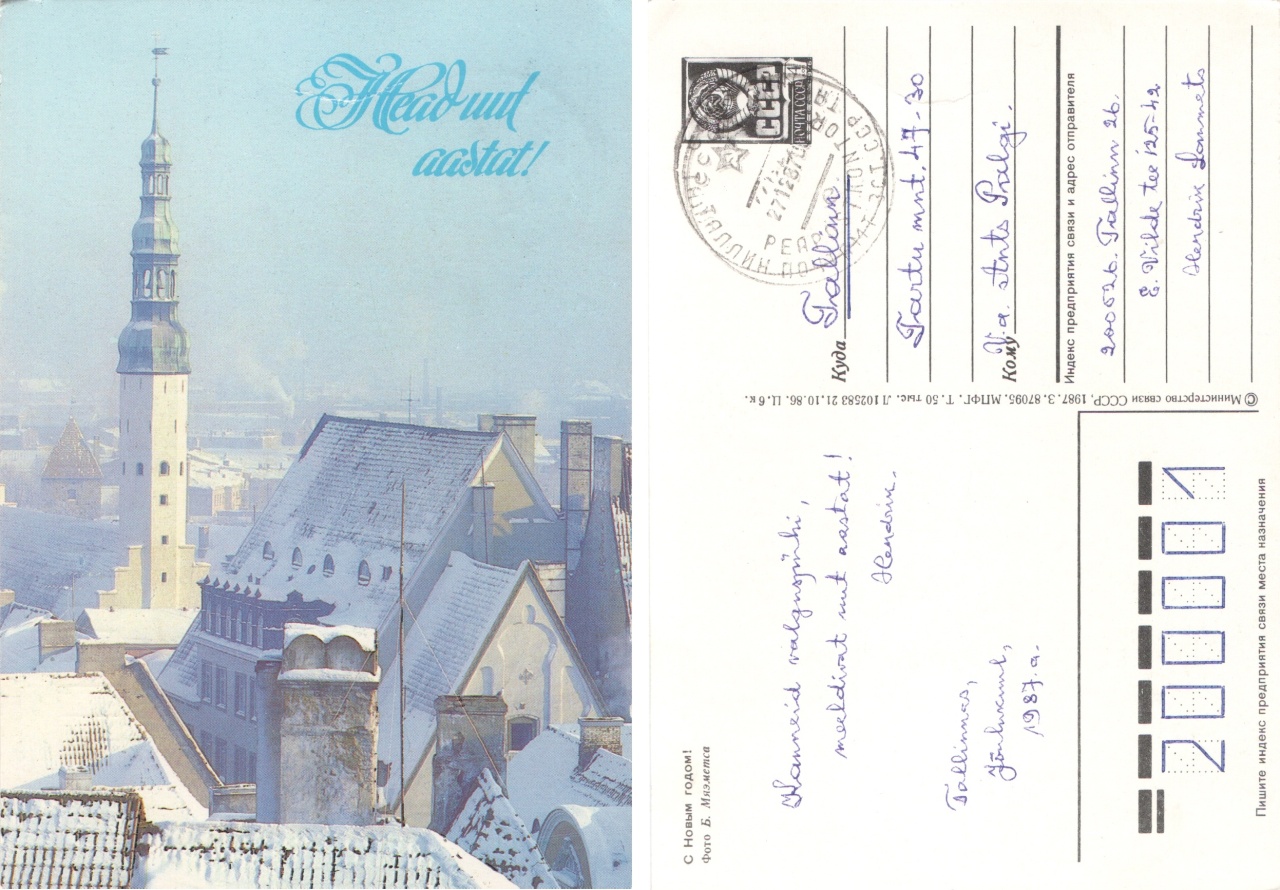 Head uut
aastat!
СССР
ПОЧТА СССР
271287
Куда
Tallinn
Tartu mnt. 47-30
Кому
V.a. Ants Pralgi.
Индекс предприятия связи и адрес отправителя
200026. Tallinn 26.
E. Vilde tee 125-42
Hendrik
© Министерство связи СССР, 1987. З. 87095. МПФГ. Т. 50 тыс. Л 102583 21.10.86. Ц. 6 к.
Kauneid valguspühi,
meeldivat uut aastat!
Hendrik.
Tallinnas,
Jõulukuul,
1987.a.
С Новым годом!
Фото Б. Мяэметса
200001
Пишите индекс предприятия связи места назначения